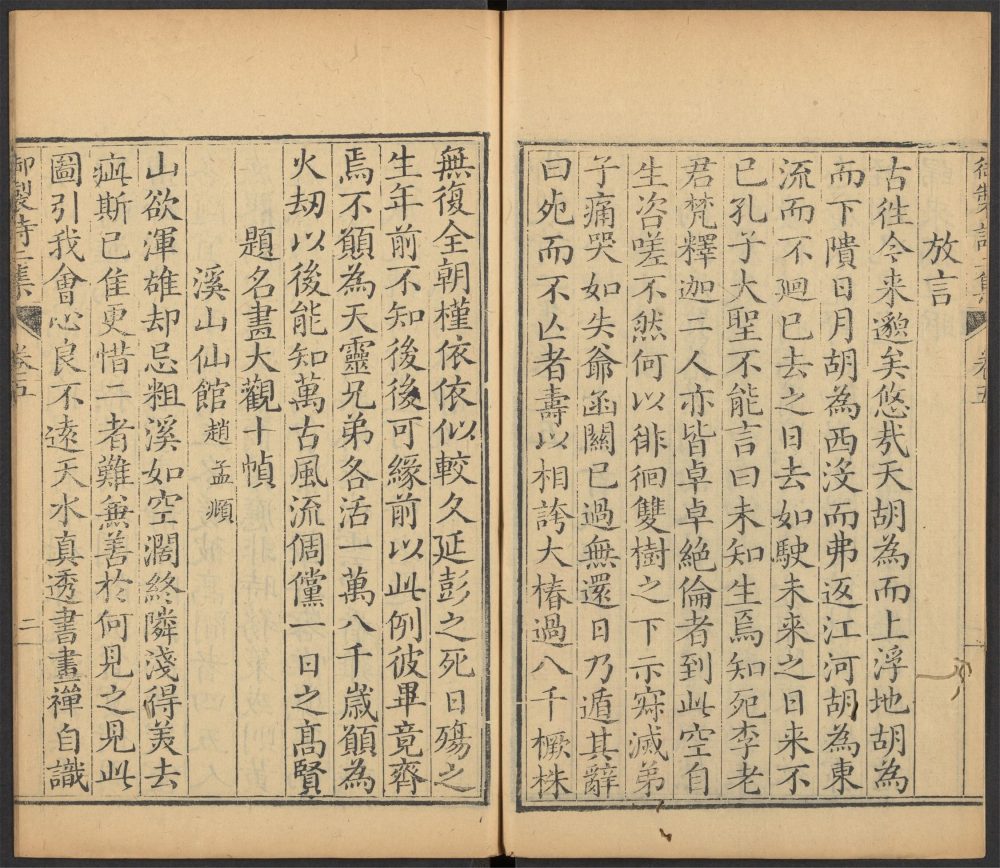 御製詩二集
卷五
放言
古徃今来邈矣悠㢤天胡為而上浮地胡為
而下隤日月胡為西没而弗返江河胡為東
流而不廻已去之日去如駛未来之日来不
已孔子大聖不能言曰未知生焉知死李老
君梵釋迦二人亦皆卓卓絶倫者到此空自
生咨嗟不然何以徘徊雙樹之下示寂滅弟
子痛哭如失爺函關已過無還日乃遁其辭
曰死而不亾者壽以相誇大椿過八千橛株
無復全朝槿依依似較久延彭之死日殤之
生年前不知後後可緣前以此例彼畢竟齊
焉不願為天靈兄弟各活一萬八千嵗願為
火刼以後能知萬古風流倜儻一日之髙賢
題名畫大觀十幀
溪山仙館 趙孟頫
山欲渾雄却忌粗溪如空濶終隣淺得美去
疵斯已隹更惜二者難兼善於何見之見此
圖引我會心良不遠天水真透書畫禪自識
御製詩二集
卷五
二